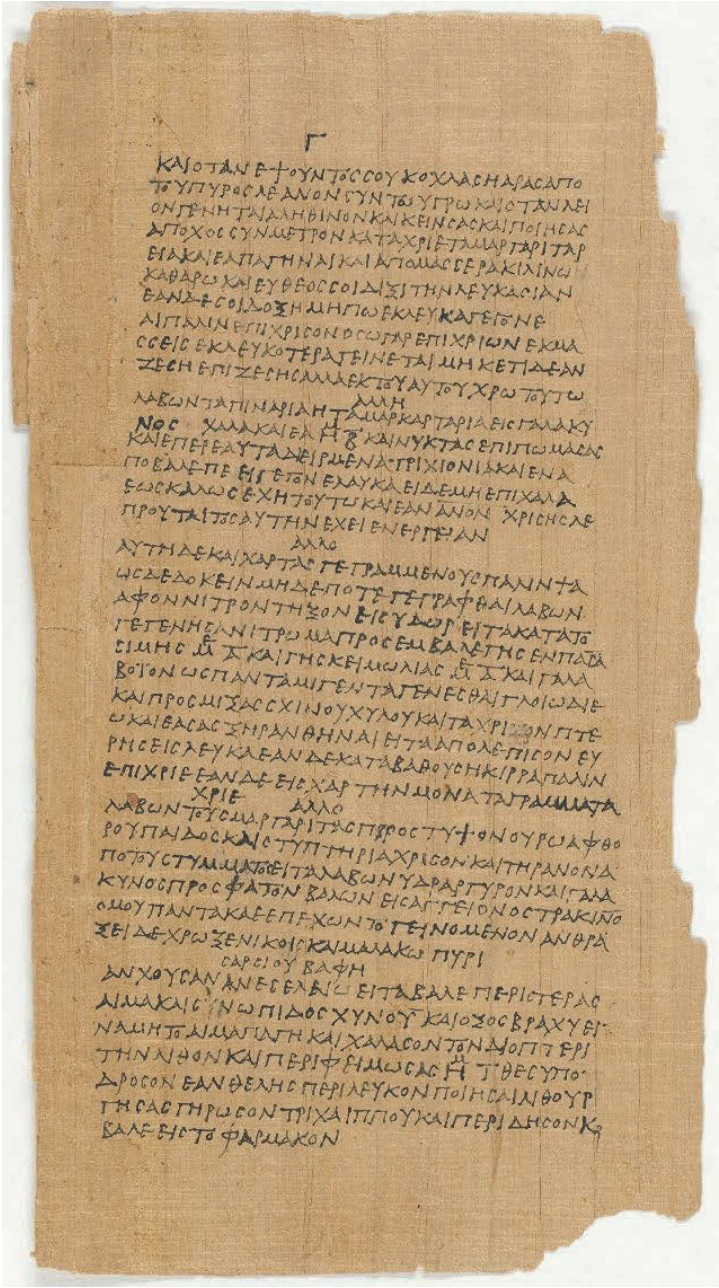 Γ
ΚΑΙΟΤΑΝΕΨΟΥΝΤΟCCΟΥΚΟΧΛΑCΗΑΡΑCΑΠΟ
ΤΟΥΠΥΡΟCΛΕΑΝΟΝCΥΝΤΩΥΓΡΩΚΑΙΟΤΑΝΛΕΙ
ΟΝΓΕΝΗΤΑΙΑΛΗΘΙΝΟΝΚΑΙΚΕΙΝCΑCΚΑΙΠΟΙΗCΑC
ΑΠΟΧΟCCΥΝΜΕΤΡΟΝΚΑΤΑΧΡΙΕΤΑΜΑΡΓΑΡΙΤΑΡ
ΕΙΑΚΑΙΕΑΠΑΓΗΝΑΙΚΑΙΑΠΟΜΑCCΕΡΑΚΙΛΙΝΩ
ΚΑΘΑΡΩΚΑΙΕΥΘΕΟCCΟΙΔΙΞΙΤΗΝΛΕΥΚΑCΙΑΝ
ΕΑΝΔΕCΟΙΔΟΞΗΜΗΠΩΕΚΛΕΥΚΑΓΕΓΟΝΕ
ΑΙΠΑΛΙΝΕΠΙΧΡΙCΟΝΟCΩΓΑΡΕΠΙΧΡΙΩΝΕΚΜΑ
CCΕΙCΕΚΛΕΥΚΟΤΕΡΑΓΕΙΝΕΤΑΙΜΗΚΕΤΙΔΕΑΝ
ΖΕCΗΕΠΙΖΕCΗCΑΛΛΑΕΚΤΟΥΑΥΤΟΥΧΡΩΤΟΥΤΩ
ΑΛΛΗ
ΛΑΒΩΝΤΑΠΙΝΑΡΙΑΗΤΑΜΑΡΚΑΡΤΑΡΙΑΕΙCΓΑΛΑΚΥ
ΝΟC ΧΑΛΑΚΑΙΕΑ ΚΑΙΝΥΚΤΑCΕΠΙΠΩΜΑCΑC
ΚΑΙΕΠΕΡΕΑΥΤΑΔΕΙΡΜΕΝΑΤΡΙΧΙΟΝΙΑΚΑΙΕΝΑ
ΠΟΒΑΛΕΠΕ ΕΙΓΕΓΟΝΕΛΑΥΚΑΕΙΔΕΜΗΕΠΙΧΑΛΑ
ΕΩCΚΑΛΩCΕΧΗΤΟΥΤΩΚΑΙΕΑΝΑΝΟΝ ΧΡΙCΗCΛΕ
ΠΡΟΥΤΑΙΤΟCΑΥΤΗΝΕΧΕΙΕΝΕΡΓΕΙΑΝ
ΑΛΛΟ
ΑΥΤΗΔΕΚΑΙΧΑΡΤΑCΓΕΓΡΑΜΜΕΝΟΥCΠΑΛΙΝΨΑ
ΩCΔΕΔΟΚΕΙΝΜΗΔΕΠΟΤΕΓΕΓΡΑΦΘΑΙΛΑΒΩΝ
ΑΦΟΝΝΙΤΡΟΝΤΗΞΟΝΕΙCΥΔΩΡΕΙΤΑΚΑΤΑΤΟ
ΓΕΓΕΝΗCΑΝΙΤΡΩΜΑΠΡΟCΕΜΒΑΛΕΓΗCΕΝΠΑΤΑ
CΙΜΗC ΚΑΙΓΗCΚΕΙΜΩΛΙΑC ΚΑΙΓΑΛΑ
ΒΟΙΟΝΩCΠΑΝΤΑΜΙΓΕΝΤΑΓΕΝΕCΘΑΙΓΛΟΙΩΔΙΕ
ΚΑΙΠΡΟCΜΙΞΑCCΧΙΝΟΥΧΥΛΟΥΚΑΙΤΑΧΡΙCΟΝΠΤΕ
ΩΚΑΙΕΑCΑCΞΗΡΑΝΘΗΝΑΙΕΙΤΑΑΠΟΛΕΠΙCΟΝΕΥ
ΡΗCΕΙCΛΕΥΚΛΕΑΝΔΕΚΑΤΑΒΑΘΟΥCΗΚΙΡΡΑΠΑΛΙΝ
ΕΠΙΧΡΙΕΕΑΝΔΕΕΙCΧΑΡΤΗΝΜΟΝΑΤΑΓΡΑΜΜΑΤΑ
ΧΡΙΕ ΑΛΛΟ
ΛΑΒΩΝΤΟΥCΜΑΡΓΑΡΙΤΑCΠΡΟCΤΥΨΟΝΟΥΡΩΑΦΘΟ
ΡΟΥΠΑΙΔΟCΚΑΙCΤΥΠΤΗΡΙΑΧΡΙCΟΝΚΑΙΤΗΡΑΝΟΝΑ
ΠΟΤΟΥCΤΥΜΜΑΤΟCΕΙΤΑΛΑΒΩΝΥΔΡΑΡΓΥΡΟΝΚΑΙΓΑΛΑ
ΚΥΝΟCΠΡΟCΦΑΤΟΝΒΑΛΩΝΕΙCΑΓΓΕΙΟΝΟCΤΡΑΚΙΝΟ
ΟΜΟΥΠΑΝΤΑΚΑΕΕΠΕΧΩΝΤΟΓΕΙΝΟΜΕΝΟΝΑΝΘΡΑ
ΞΕΙΔΕΧΡΩΞΕΝΙΚΟΙCΚΑΙΜΑΛΑΚΩ ΠΥΡΙ
CΑΡCΙΟΥΒΑΦΗ
ΑΝΧΟΥCΑΝΑΝΕCΕΛΕΙΩΕΙΤΑΒΑΛΕΠΕΡΙCΤΕΡΑC
ΑΙΜΑΚΑΙCΙΝΩΠΙΔΟCΧΥΝΟΥΚΑΙΟΞΟCΒΡΑΧΥΕΙ
ΝΑΜΗΤΟΑΙΜΑΠΑΓΗΚΑΙΧΑΛΑCΟΝΤΟΝΔΙΟΠΤΕΡΙ
ΤΗΝΛΙΘΟΝΚΑΙΠΕΡΙΦΕΙΜΩCΑC ΘΕCΥΠΟ
ΔΡΟCΟΝΕΑΝΘΕΛΗCΠΕΡΙΛΕΥΚΟΝΠΟΙΗCΑΙΛΙΘΟΥΡ
ΓΗCΑCΠΗΡΩCΟΝΤΡΙΧΑΙΠΠΟΥΚΑΙΠΕΡΙΔΗCΟΝΚ
ΒΑΛΕΕΙCΤΟΦΑΡΜΑΚΟΝ